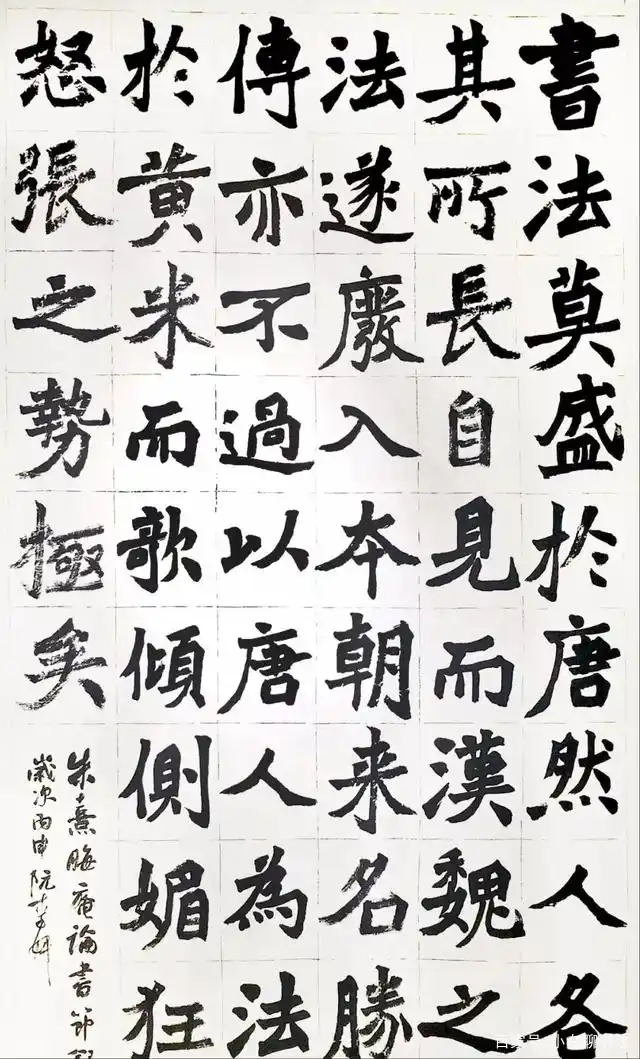 書法莫盛於唐然人各
其所長自見而漢魏之
法遂廢入本朝来名勝
傳亦不過以唐人為法
於黄米而歌傾側媚狂
怒張之勢極矣
朱熹晦庵論書節
歲次丙申阮